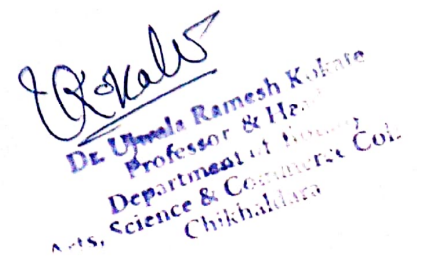 Rokalo
Dr. Ujwala Ramesh Kokate
Professor & Head
Department of Botany
Arts, Science & Commerce Col.
Chikhaldara